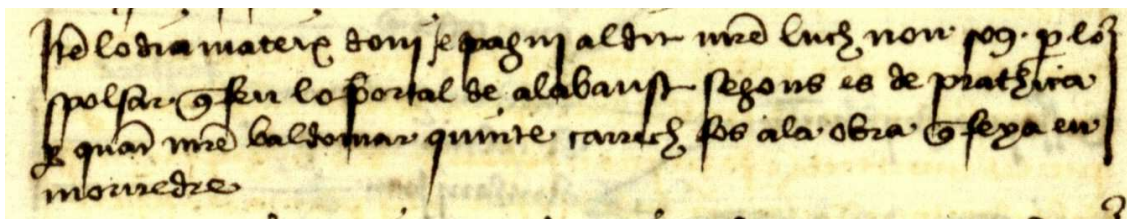 Itẽ lo dia mateix doni e pagui al dit mrẽ luch nou sos. p lo
spolsar q̃ feu lo portal de alabaust segons es de prathica
p quãt mrẽ baldomar quinte carrech fos a la obra q̃ feya en
morvedre